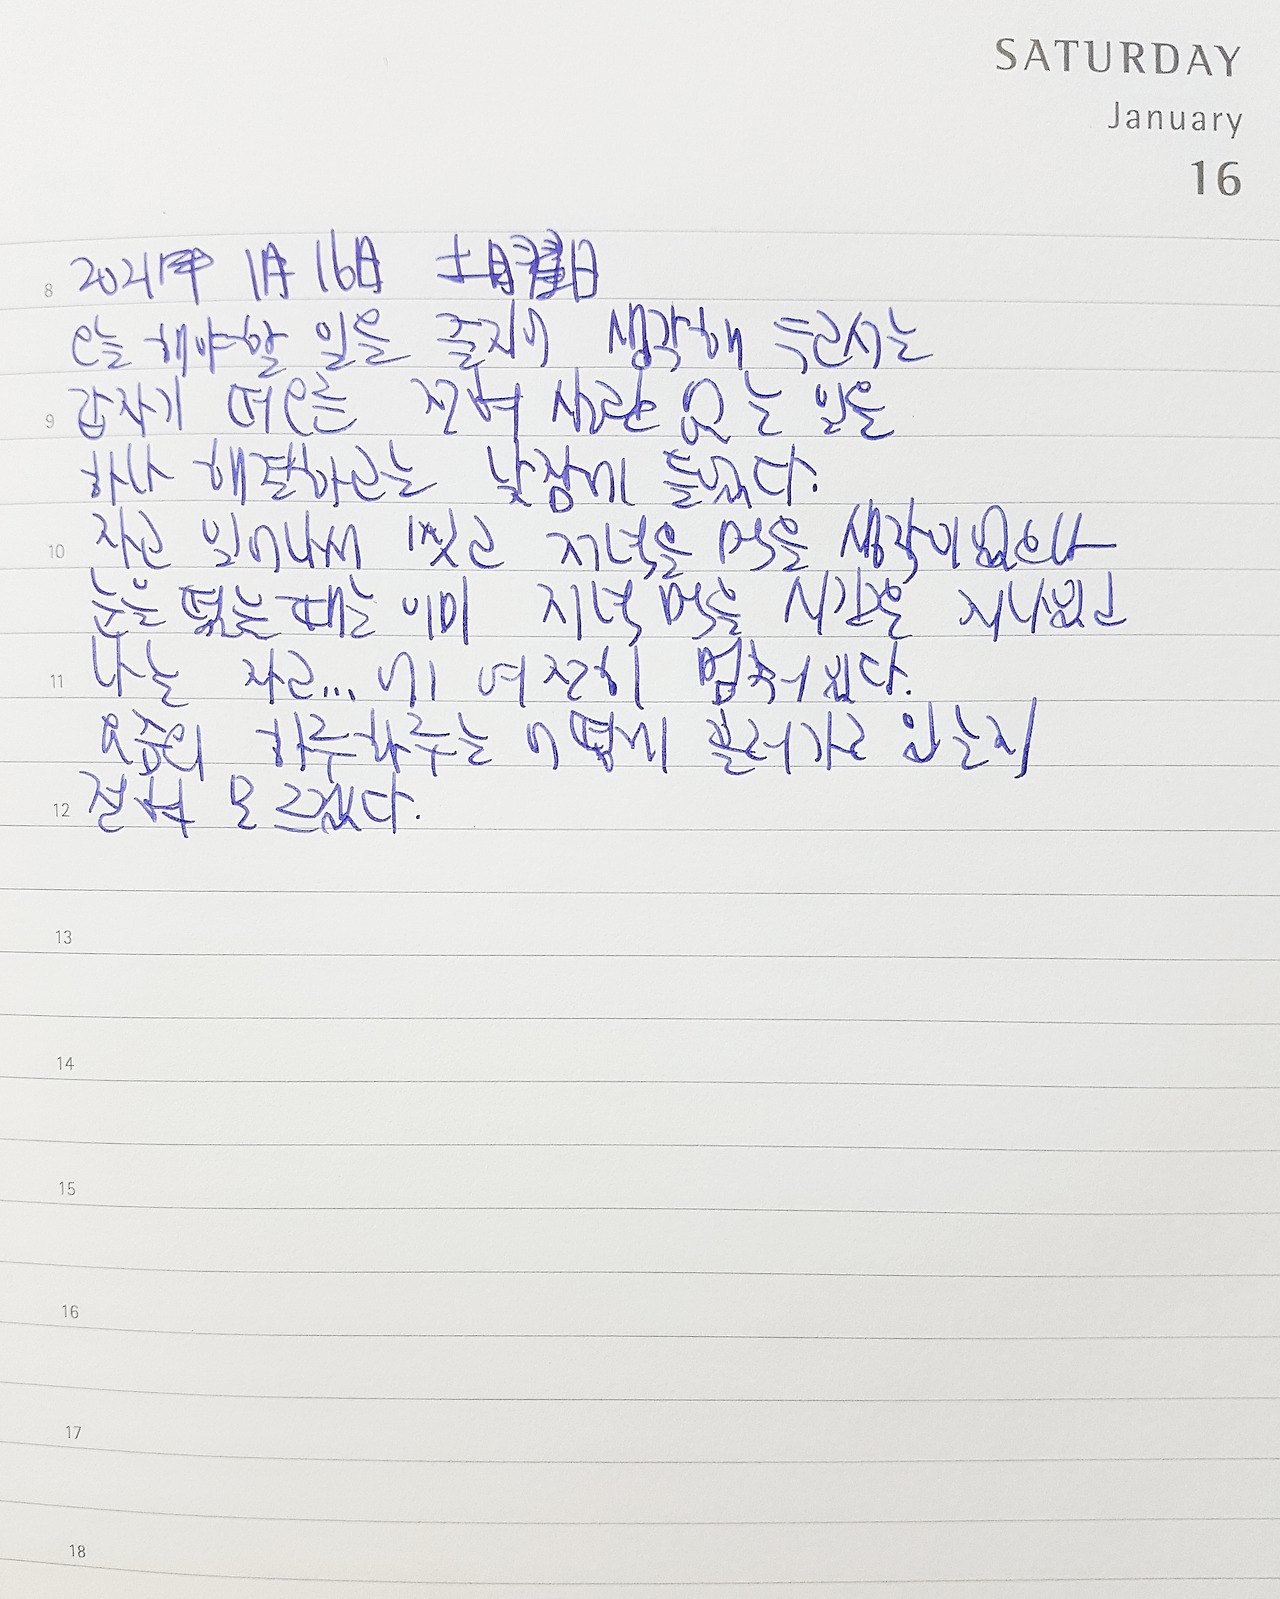 SATURDAY
January
16
8 2021年 1月 16日 土曜日
오늘 해야할 일을 줄지어 생각해 두고서는
9 갑자기 떠오른 전혀 상관 없는 일을
하나 해결하고는 낮잠에 들었다.
10 자고 일어나서 씻고 저녁을 먹을 생각이었으나
눈을 떴을 때는 이미 저녁 먹을 시간을 지나있고
11 나는 자고... 여전히 멈춰있다.
요즘의 하루하루는 어떻게 흘러가고 있는지
12 전혀 모르겠다.
13
14
15
16
17
18